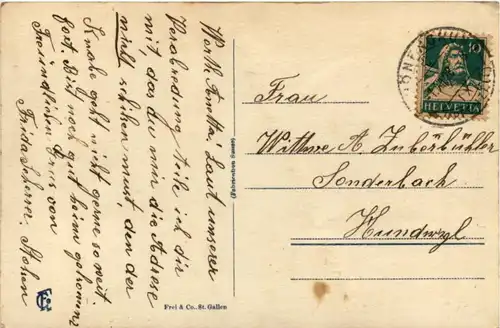 Werth Familie! Laut unserer
Verabredung teile ich dir
mit das du mir die Adresse
nicht schiken must, den der
Knabe geht nicht gerne so weit.
fort. Bist noch gut heim gekommen
Freundlichen Grus von
Frida Scherrer. Hohen
(Fabrication Suisse)
Frei & Co., St. Gallen
10
HELVETIA
Frau
Wittwe A. Zuberbühler
Sonderbach
Hundwyl